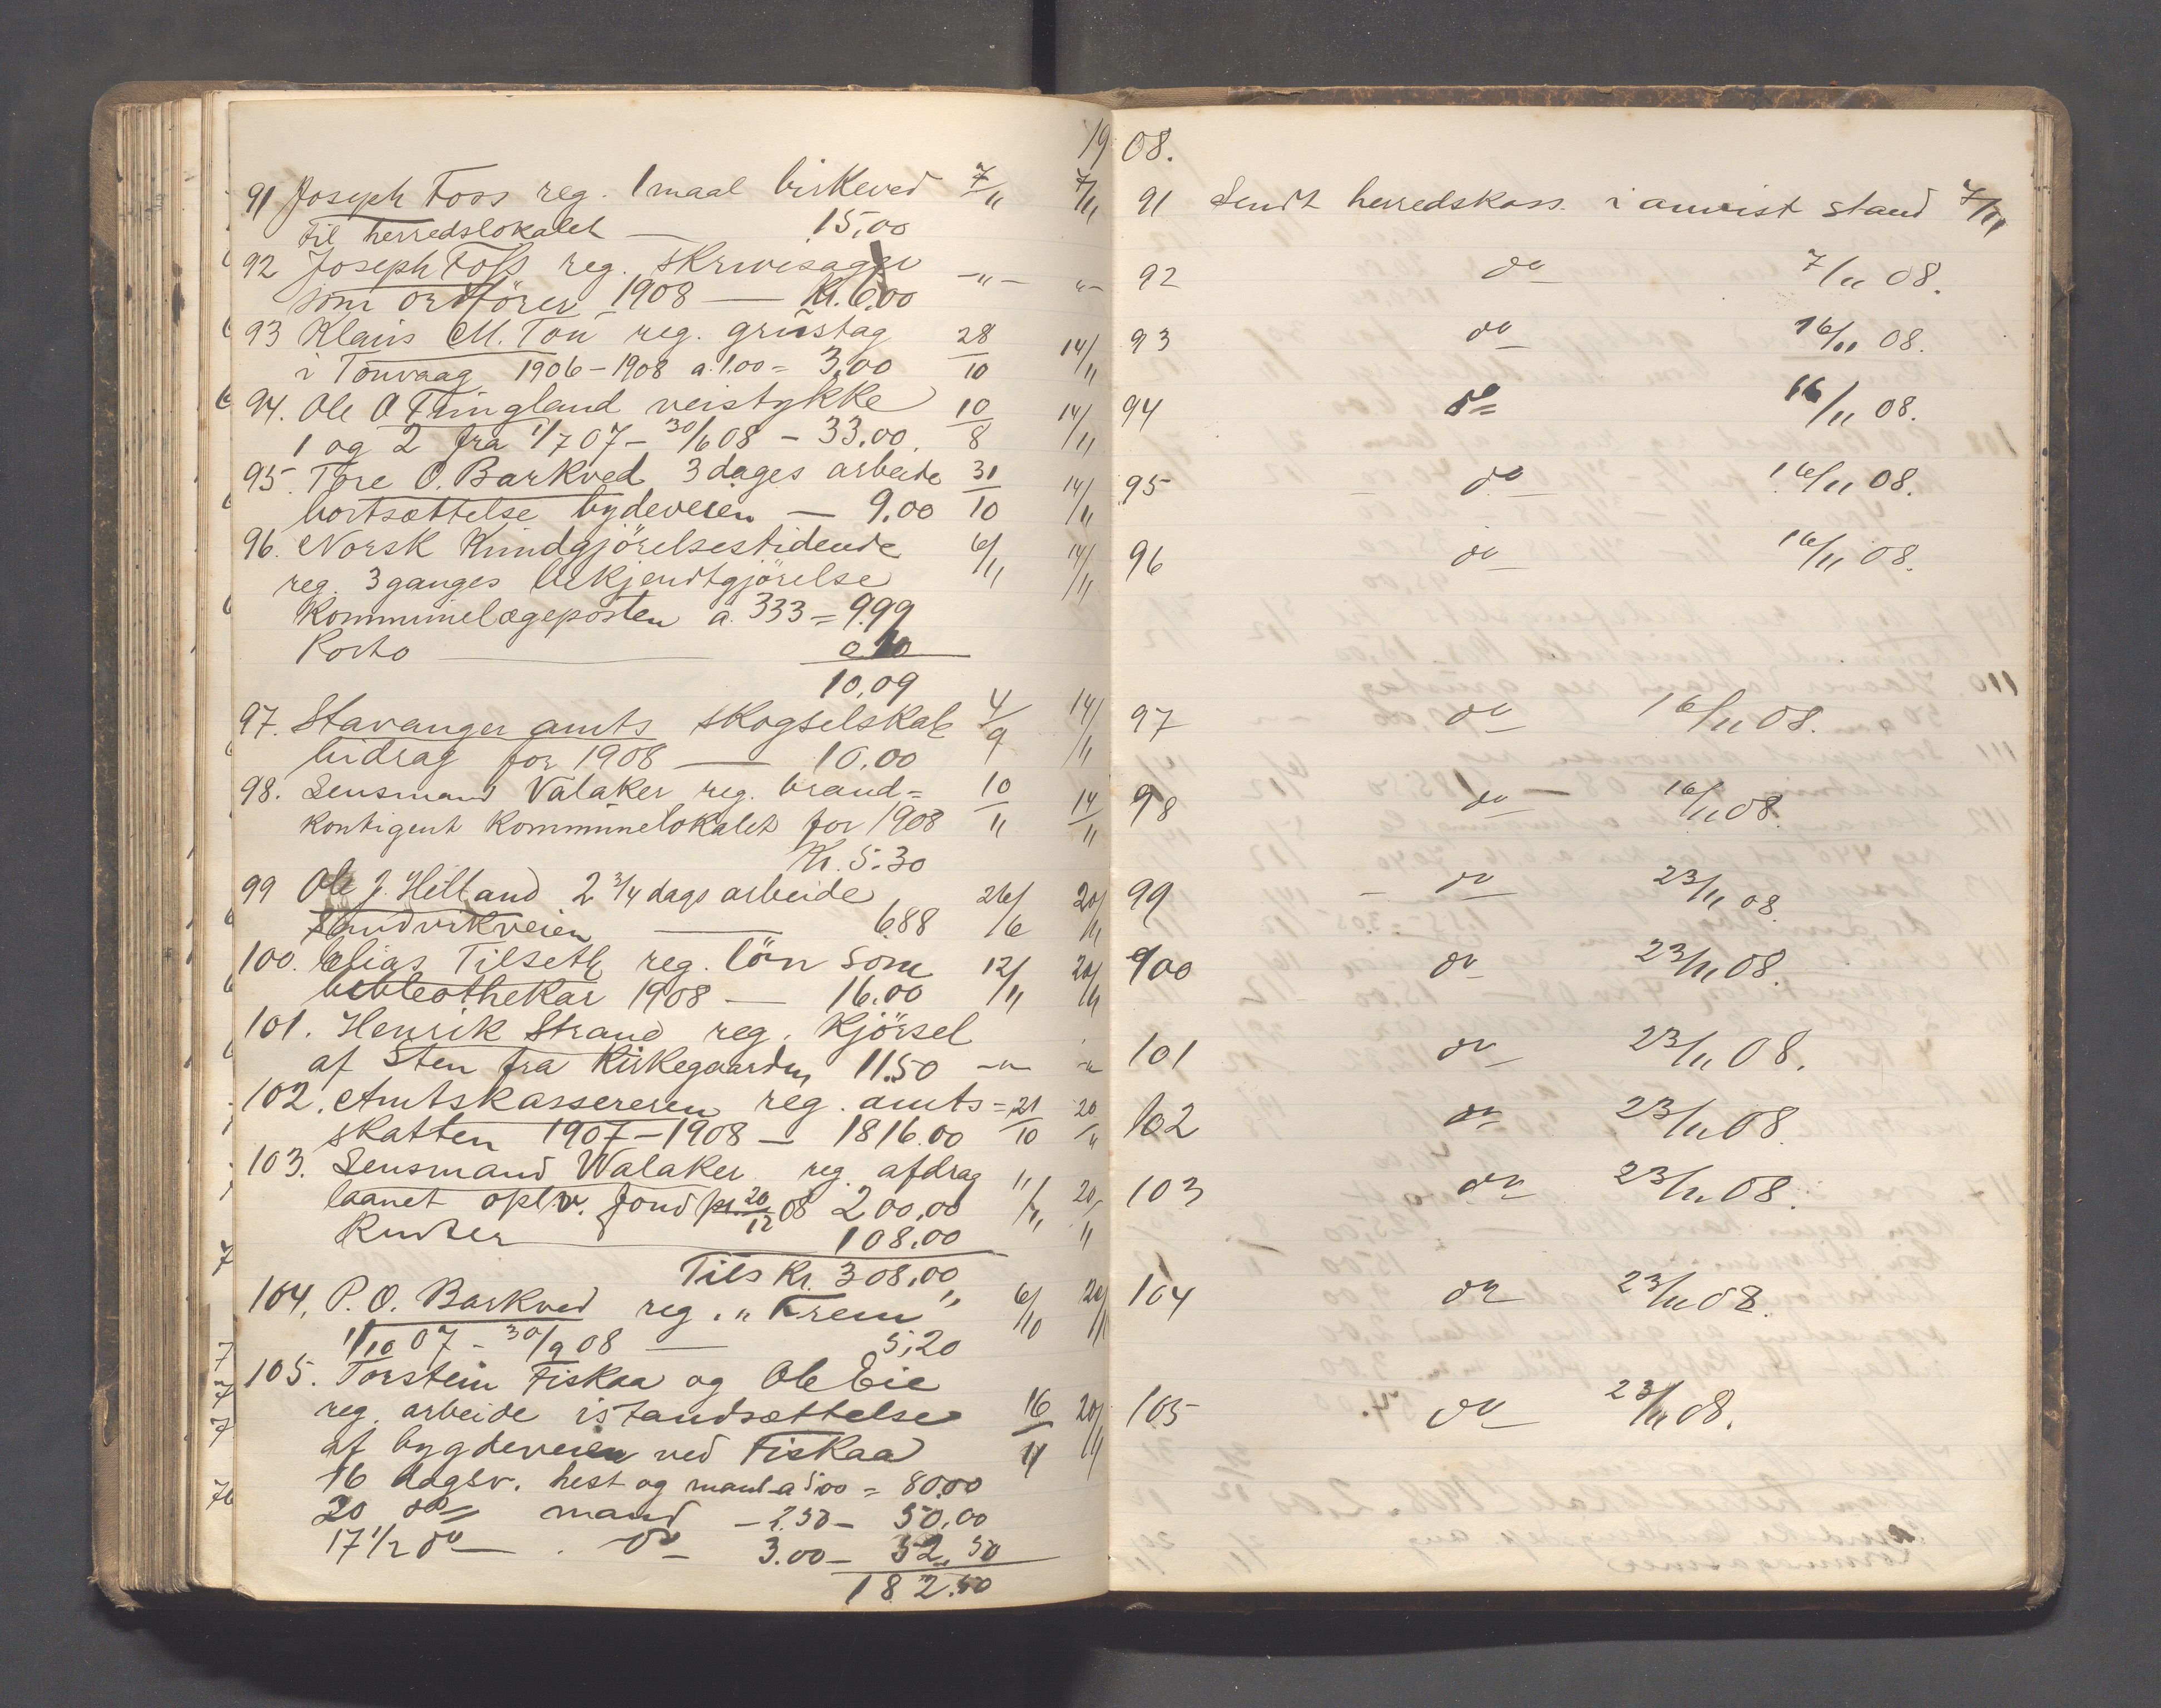 1908.
91 Joseph Foss reg. 1 maal birkeved 7/11 7/11
til herredslokalet — 15,00
92 Joseph Foss reg. skrivesager —"— "—
som ordförer 1908 — Kr. 6.00
93 Klaus M. Ton reg. grustag 28/10 14/11
i Tonvaag 1906-1908 a 1.00 = 3,00
94. Ole O Tungland veistykke 10/8 14/11
1 og 2 fra 1/7 07 - 30/6 08 - 33.00
95. Tore O. Barkved 3 dages arbeide 31/10 14/11
bortsættelse bydeveien — 9.00
96. Norsk Kundgjörelsestidende 6/11 14/11
reg. 3 ganges bekjendtgjörelse
Kommunelægeposten a. 333 = 9.99
Porto — 0.10
10,09
97. Stavanger amts skogselskab 4/9 14/11
bidrag for 1908 — 10.00
98. Lensmand Valaker reg. brand= 10/11 14/11
kontigent kommunelokalet for 1908
Kr. 5.30
99 Ole J. Hetland 2 3/4 dags arbeide 26/6 20/11
Sandvikveien — 6.88
100. Elias Tilseth reg. lön som 12/11 20/11
bibleothekar 1908 — 16.00
101. Henrik Strand reg. Kjörsel
af Sten fra Kirkegaarden 11.50 —"— "—
102. Amtskassereren reg. amts= 21/10 20/11
skatten 1907-1908 — 1816.00
103. Lensmand Walaker reg. afdrag 11/11 20/11
laanet oplv. fond pr. 20/12 08 200,00
Renter — 108.00
Tils Kr. 308,00
104, P. O. Barkved reg. "Frem" 6/10 20/11
1/10 07 - 30/9 08 — 5,20
105. Torstein Fiskaa og Ole Eie
reg. arbeide istandsættelse 16/11 20/11
af bygdeveien ved Fiskaa
16 dagsv. hest og mand a 5.00 = 80.00
20 do mand - 2.50 - 50,00
17 1/2 do . do 3.00 - 52,50
182.50
91 Sendt herredskass. i anvist stand 7/11
92 do 7/11 08.
93 do 16/11 08.
94 do 16/11 08.
95 do 16/11 08.
96 do 16/11 08.
97 do 16/11 08.
98 do 16/11 08.
99 do 23/11 08.
100 do 23/11 08.
101 do 23/11 08.
102 do 23/11 08.
103 do 23/11 08.
104 do 23/11 08.
105 do 23/11 08.